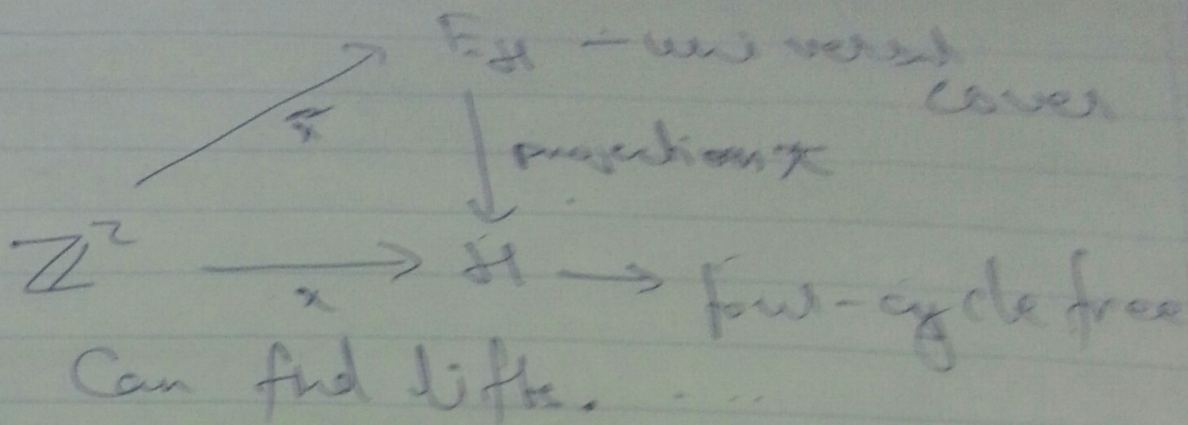 E_ℋ - universal
cover
x̃
projection π
ℤ² → ℋ → four-cycle free
x
Can find lifts. ....